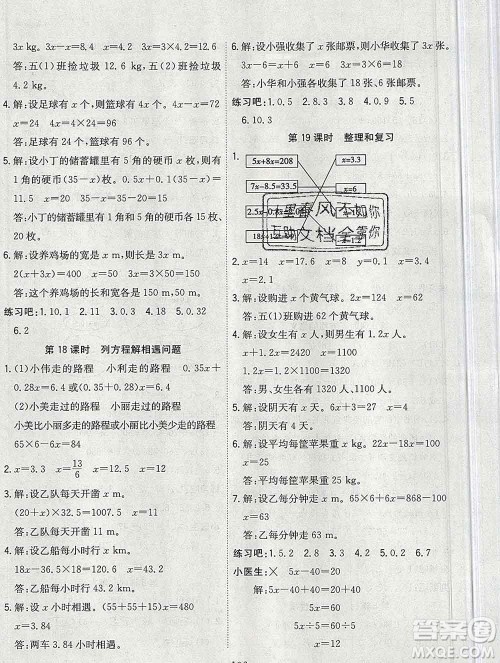 3x kg。
3x-x=8.4 x=4.2 4.2×3=12.6
答:五(1)班捡垃圾 12.6 kg,五(2)班捡垃圾
4.2 kg。
4.解:设足球有 x 个,则篮球有 3x 个。 4x-x=72
x=24 3x=24×4=96
答:足球有 24 个,篮球有 96 个。
5.解:设小丁的储蓄罐里有 5 角的硬币 x 枚,则有
1 角的硬币 x 枚。 x+0.5x=9 x=6
答:小丁的储蓄罐里有 1 角和 5 角的硬币各
6 枚。
6.解:设养鸡场的宽是 x m,则长是 3x m。
2(x+3x)=400 x=50 3x=3×50=150
答:这个养鸡场的长和宽各是 150 m,50 m。
练习吧:1. 10.1 2. 11 3. 0.7 4. 5.2 5. 0.32
6. 2
第 18 课时 列方程解相遇问题
1.(1)小伟走的路程 小利走的路程 0.35x+
0.2x=4.4 或 (0.35+0.2)x=4.4
(2)小美走过的路程 小丽走过的路程
小美比小丽多走的路程 小美走过的路程
65×6-5x=84
2. x=3.3 x=13/6 x=3.4
3.解:设乙队每天开凿 x m。
(20+x)×32=1216 x=18
答:乙队每天开凿 18 m。
4.解:设乙船每小时行 x km。
18x-24×18=54 x=27
答:乙船每小时行 27 km。
5.解:设 x 小时相遇。 (55+55+15)x=480
x=3.84
答:两车 3.84 小时相遇。
6.解:设小强收集了 x 张邮票,则小华收集了 3x 张。
3x-6=x+6 x=6 3x=18
答:小华和小强各收集了 18 张、6 张邮票。
练习吧:1. 0.5 2. 0.8 3. 9 4. 0.9 5. 0
6. 10.3
第 19 课时 整理和复习
1.
5x+8x=208 x=3.3
7x-8.5=33.5 x=6
2. x=14 x=7 x=0.2 x=4
3.解:设购进 x 个黄气球。 5x-20=180 x=40
答:购进 40 个黄气球。
4.解:设女生有 x 人,则男生有 1.2x 人。
x+1.2x=110 x=50 1.2x=60
答:男生有 60 人,女生有 50 人。
5.解:设阴天有 x 天。 2x+6=18 x=6
答:阴天有 6 天。
6.解:设平均每筐苹果重 x kg。 36x-22x=280
x=20
答:平均每筐苹果重 20 kg。
7.解:设乙每分钟走 x m。 65×6+6x=750
x=60
答:乙每分钟走 60 m。
练习吧:1. 5.2 2. 0.3 3. 3 4. 20 5. 2 6. 0.7
小医生:× 5x-40=20
解:5x-40+40=20+40
5x=60
5x÷5=60÷5
x=12
答案圈
MXQE.COM